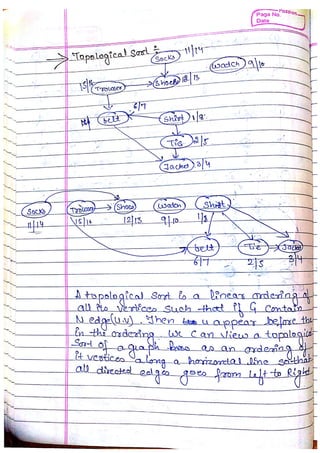 Page No.
Date
Topological Sort :-
Socks 11/14
Watch 9/10
15/16 Trouser
Shoes 12/13
6/7
belt
Shirt 1/8
Tie 2/5
Jacket 3/4
Socks Trouser Shoes Watch Shirt
11/14 15/16 12/13 9/10 1/8
belt Tie Jacket
6/7 2/5 3/4
A topological sort is a linear ordering of
all its vertices such that if G contain
N edge(u.v). Then u appear before the
in the ordering. We Can view a topological
Sort of a graph as an ordering of
it vertices along a horizontal line so that
all directed edges goes from left to Right